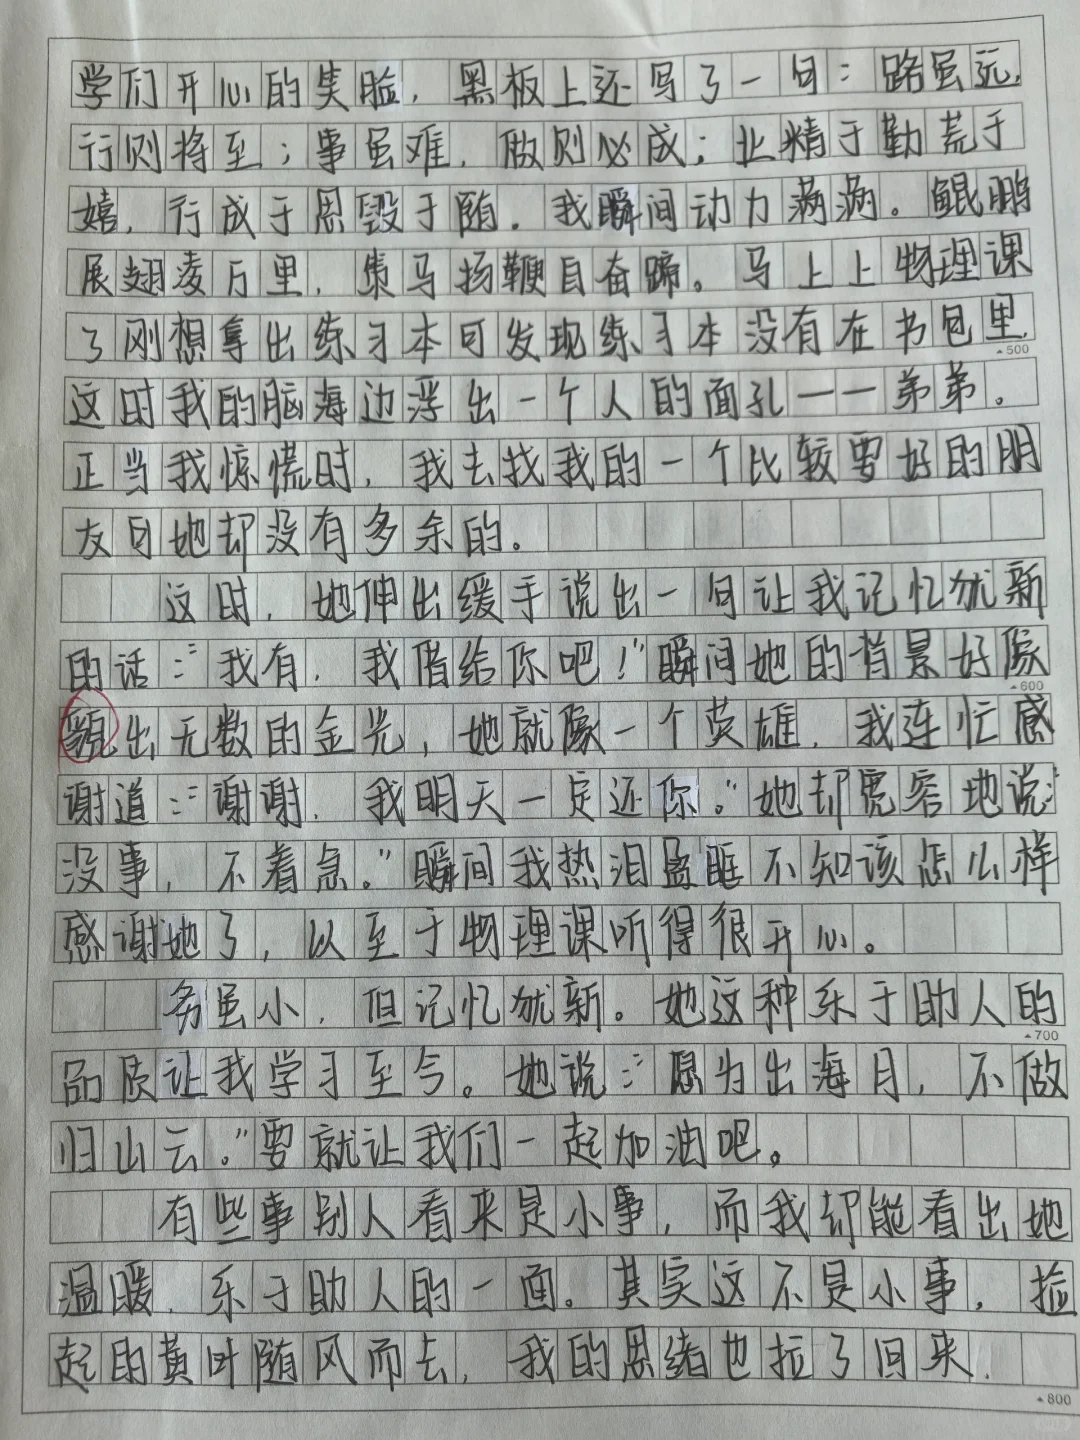 学们开心的笑脸，黑板上还写了一句：路虽远，
行则将至；事虽难，做则必成；业精于勤荒于
嬉，行成于思毁于随。我瞬间动力满满。鲲鹏
展翅凌万里，策马扬鞭自奋蹄。马上上物理课
了刚想拿出练习本可发现练习本没有在书包里，
500
这时我的脑海边浮出一个人的面孔——弟弟。
正当我惊慌时，我去找我的一个比较要好的朋
友可她却没有多余的。
这时，她伸出缓手说出一句让我记忆犹新
的话：“我有，我借给你吧！”瞬间她的背景好像
600
出无数的金光，她就像一个英雄，我连忙感
谢道：“谢谢，我明天一定还你。”她却宽容地说：“
没事，不着急。”瞬间我热泪盈眶不知该怎么样
感谢她了，以至于物理课听得很开心。
务虽小，但记忆犹新。她这种乐于助人的
700
品质让我学习至今。她说：“愿为出海月，不做
归山云。”要就让我们一起加油吧。
有些事别人看来是小事，而我却能看出她
温暖，乐于助人的一面。其实这不是小事，捡
起的黄叶随风而去，我的思绪也拉了回来，
800